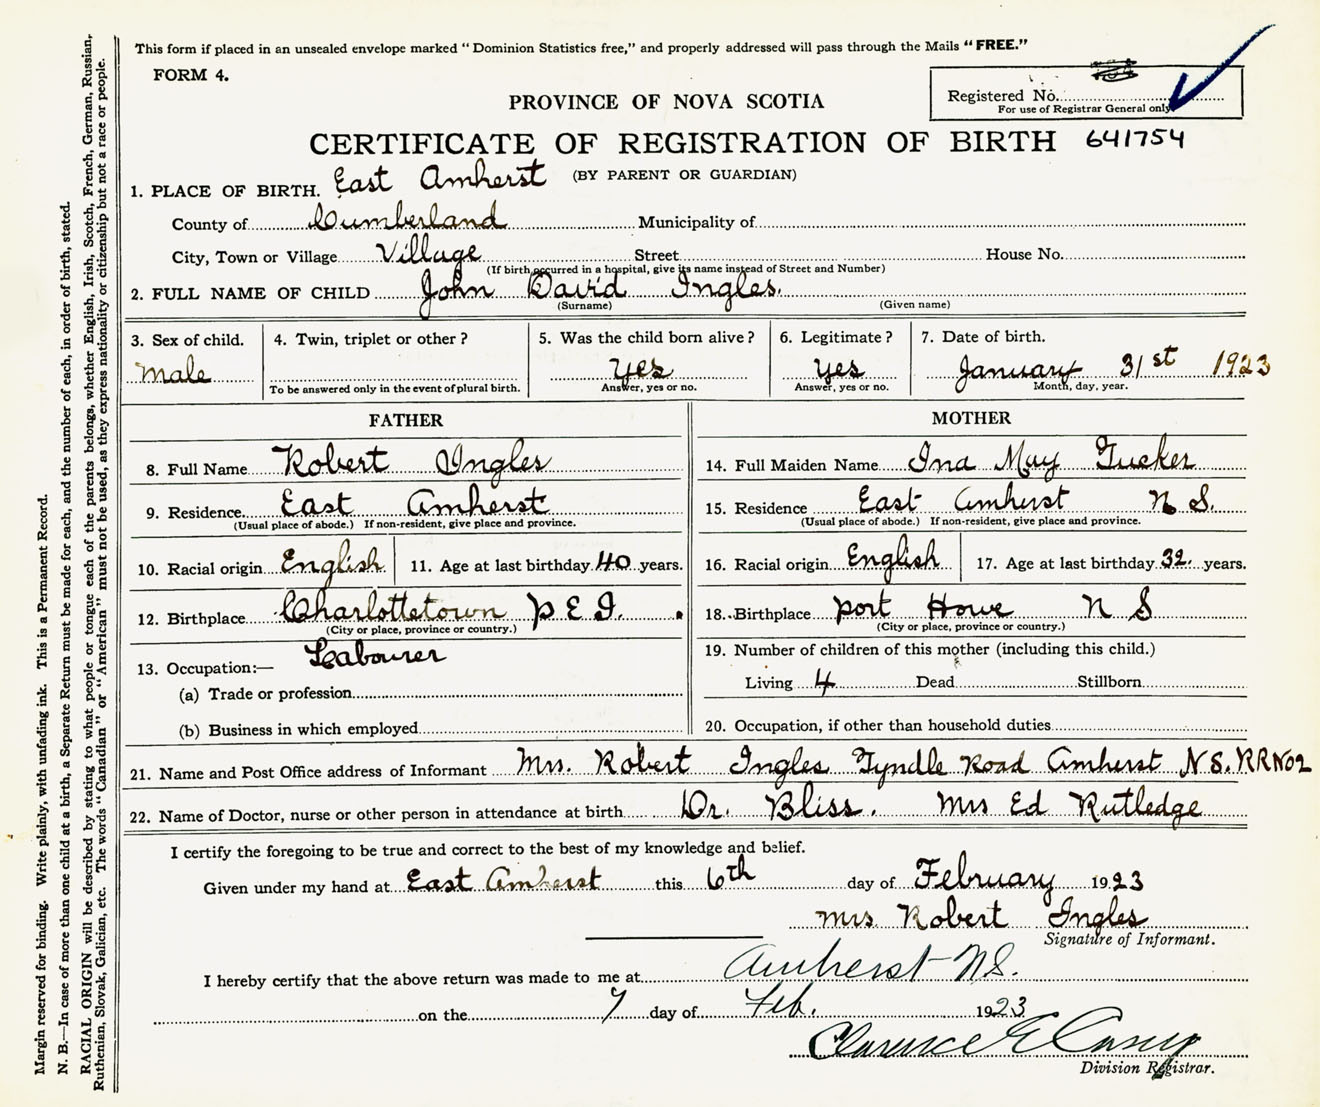 This form if placed in an unsealed envelope marked “ Dominion Statistics free,” and properly addressed will pass through the Mails “ FREE.”
FORM 4.
Registered No.
For use of Registrar General only
PROVINCE OF NOVA SCOTIA
CERTIFICATE OF REGISTRATION OF BIRTH 641754
(BY PARENT OR GUARDIAN)
1. PLACE OF BIRTH. East Amherst
County of Cumberland Municipality of
City, Town or Village Village Street House No.
(If birth occurred in a hospital, give its name instead of Street and Number)
2. FULL NAME OF CHILD John David Ingles.
(Surname) (Given name)
3. Sex of child. 4. Twin, triplet or other ? 5. Was the child born alive ? 6. Legitimate ? 7. Date of birth.
male yes yes January 31st 1923
To be answered only in the event of plural birth. Answer, yes or no. Answer, yes or no. Month, day, year.
FATHER MOTHER
8. Full Name Robert Ingles 14. Full Maiden Name Ina May Tucker
9. Residence. East Amherst 15. Residence East Amherst N S.
(Usual place of abode.) If non-resident, give place and province. (Usual place of abode.) If non-resident, give place and province.
10. Racial origin English 11. Age at last birthday 40 years. 16. Racial origin English 17. Age at last birthday 32 years.
12. Birthplace Charlottetown P.E.I. 18. Birthplace port Howe N S
(City or place, province or country.) (City or place, province or country.)
13. Occupation:— Labourer 19. Number of children of this mother (including this child.)
(a) Trade or profession Living 4 Dead Stillborn
(b) Business in which employed 20. Occupation, if other than household duties
21. Name and Post Office address of Informant Mrs. Robert Ingles Tyndle Road Amherst N S. RR No 2
22. Name of Doctor, nurse or other person in attendance at birth Dr. Bliss. Mrs Ed Rutledge
I certify the foregoing to be true and correct to the best of my knowledge and belief.
Given under my hand at East Amherst this 6th day of February 1923
mrs Robert Ingles
Signature of Informant.
I hereby certify that the above return was made to me at Amherst N.S.
on the 7 day of Feb. 1923
Clarence E Casey
Division Registrar.
Margin reserved for binding. Write plainly, with unfading ink. This is a Permanent Record.
N. B.—In case of more than one child at a birth, a Separate Return must be made for each, and the number of each, in order of birth, stated.
RACIAL ORIGIN will be described by stating to what people or tongue each of the parents belongs, whether English, Irish, Scotch, French, German, Russian,
Ruthenian, Slovak, Galician, etc. The words “ Canadian ” or “ American ” must not be used, as they express nationality or citizenship but not a race or people.